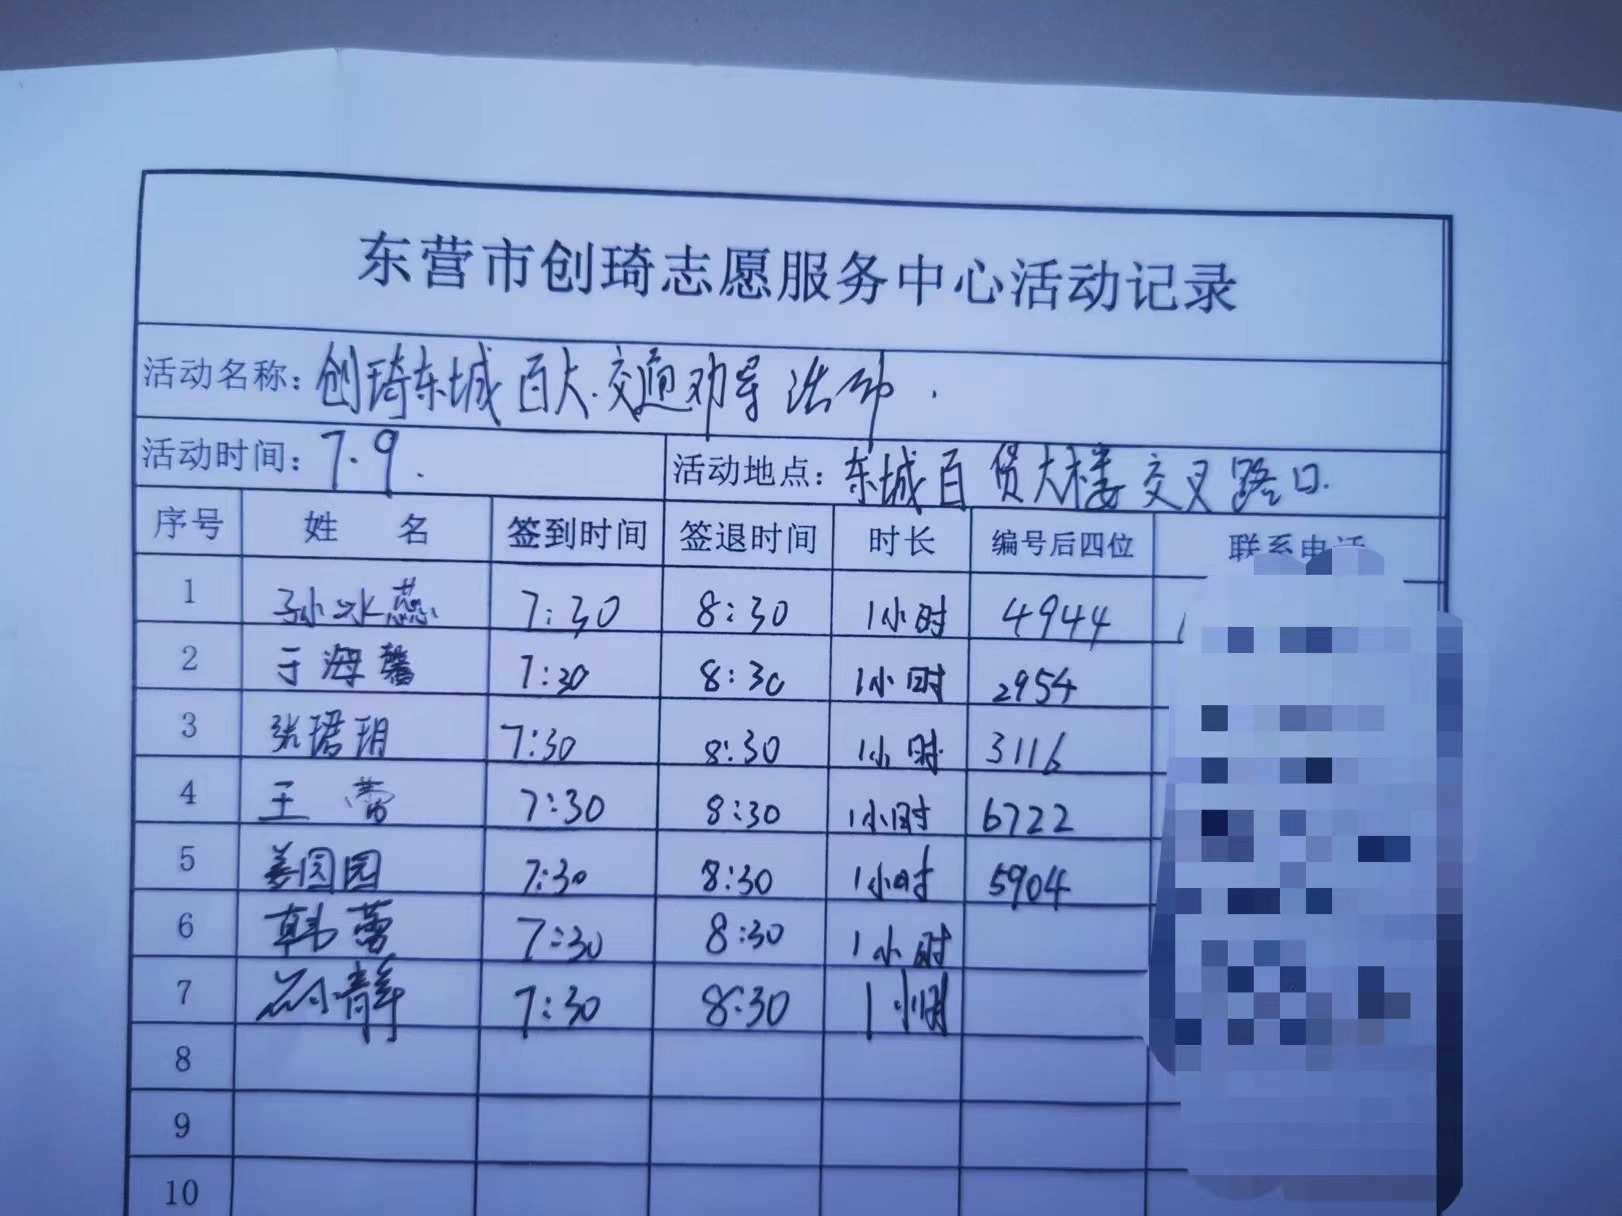 东营市创琦志愿服务中心活动记录
活动名称：创琦东城百大.交通劝导活动.
活动时间：7.9. 活动地点：东城百货大楼交叉路口.
序号 姓名 签到时间 签退时间 时长 编号后四位 联系电话
1 孙冰燕 7:30 8:30 1小时 4944 1
2 于海馨 7:30 8:30 1小时 2954
3 张珺玥 7:30 8:30 1小时 3116
4 王蕾 7:30 8:30 1小时 6722
5 姜圆园 7:30 8:30 1小时 5904
6 韩蕾 7:30 8:30 1小时
7 静 7:30 8:30 1小时
8
9
10